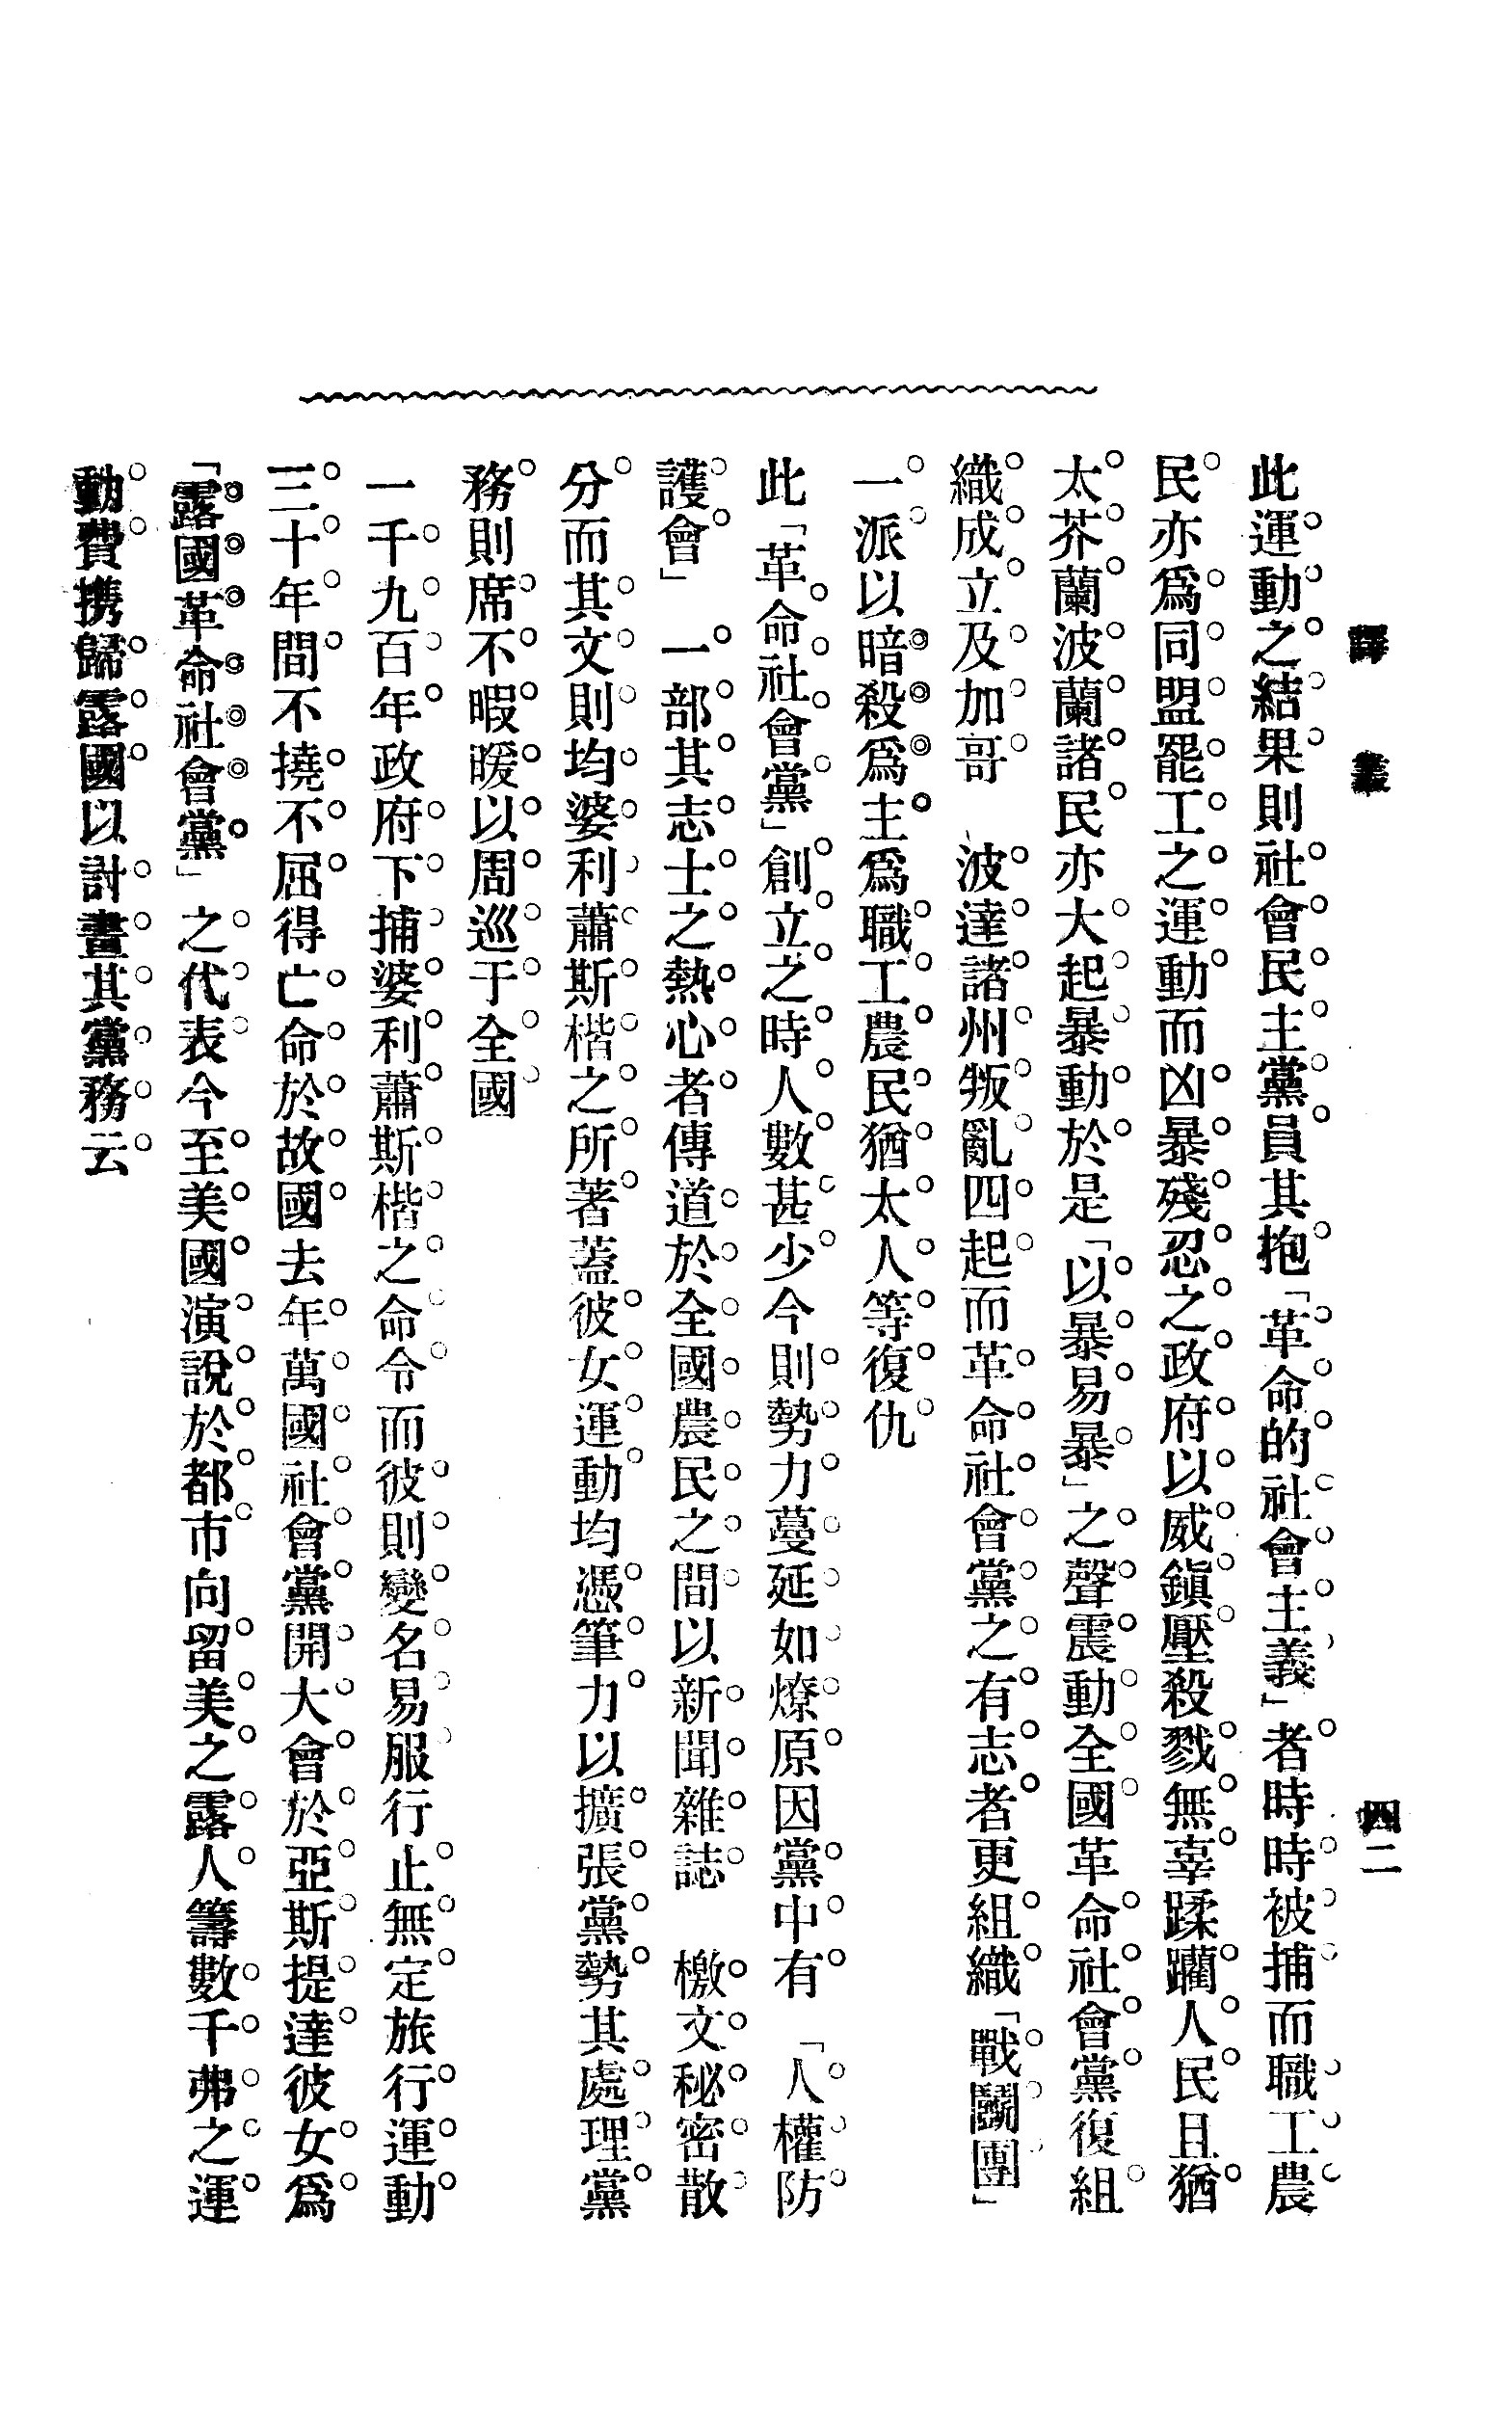 譯叢 四二
此運動之結果則社會民主黨員其抱「革命的社會主義」者時時被捕而職工農
民亦爲同盟罷工之運動而凶暴殘忍之政府以威鎭壓殺戮無辜蹂躪人民且猶
太芥蘭波蘭諸民亦大起暴動於是「以暴易暴」之聲震動全國革命社會黨復組
織成立及加哥 波達諸州叛亂四起而革命社會黨之有志者更組織「戰鬭團」
一派以暗殺爲主爲職工農民猶太人等復仇
此「革命社會黨」創立之時人數甚少今則勢力蔓延如燎原因黨中有「人權防
護會」 一部其志士之熱心者傳道於全國農民之間以新聞雜誌 檄文秘密散
分而其文則均婆利蕭斯楷之所著蓋彼女運動均憑筆力以擴張黨勢其處理黨
務則席不暇暖以周巡于全國
一千九百年政府下捕婆利蕭斯楷之命令而彼則變名易服行止無定旅行運動
三十年間不撓不屈得亡命於故國去年萬國社會黨開大會於亞斯提達彼女爲
「露國革命社會黨」之代表今至美國演說於都市向留美之露人籌數千弗之運
動費携歸露國以計畫其黨務云